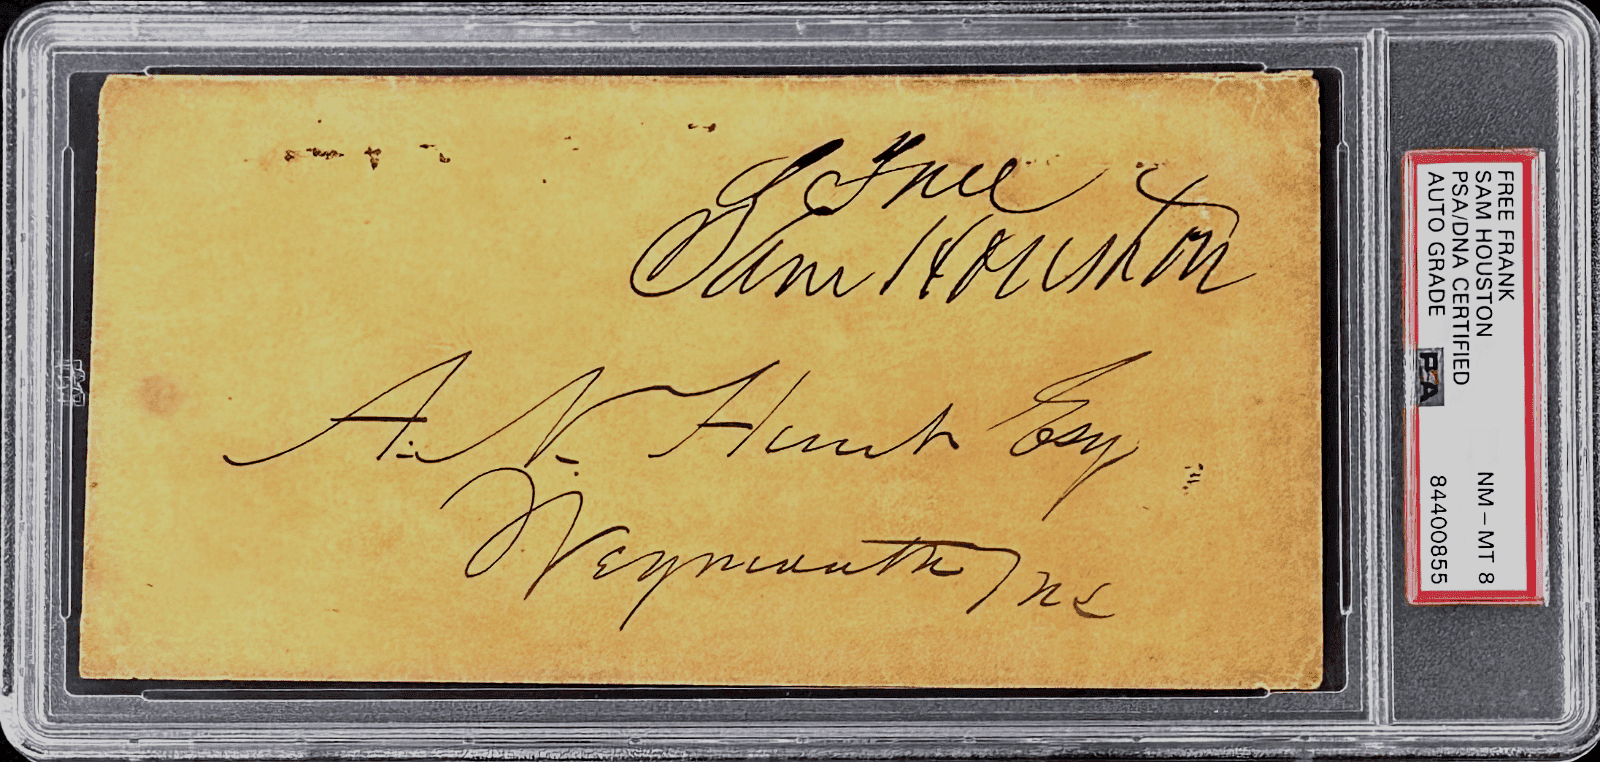 Free
Sam Houston
A. N. Hunt Esq
Weymouth
FREE FRANK
SAM HOUSTON
PSA/DNA CERTIFIED
AUTO GRADE NM-MT 8
84400855
PSA